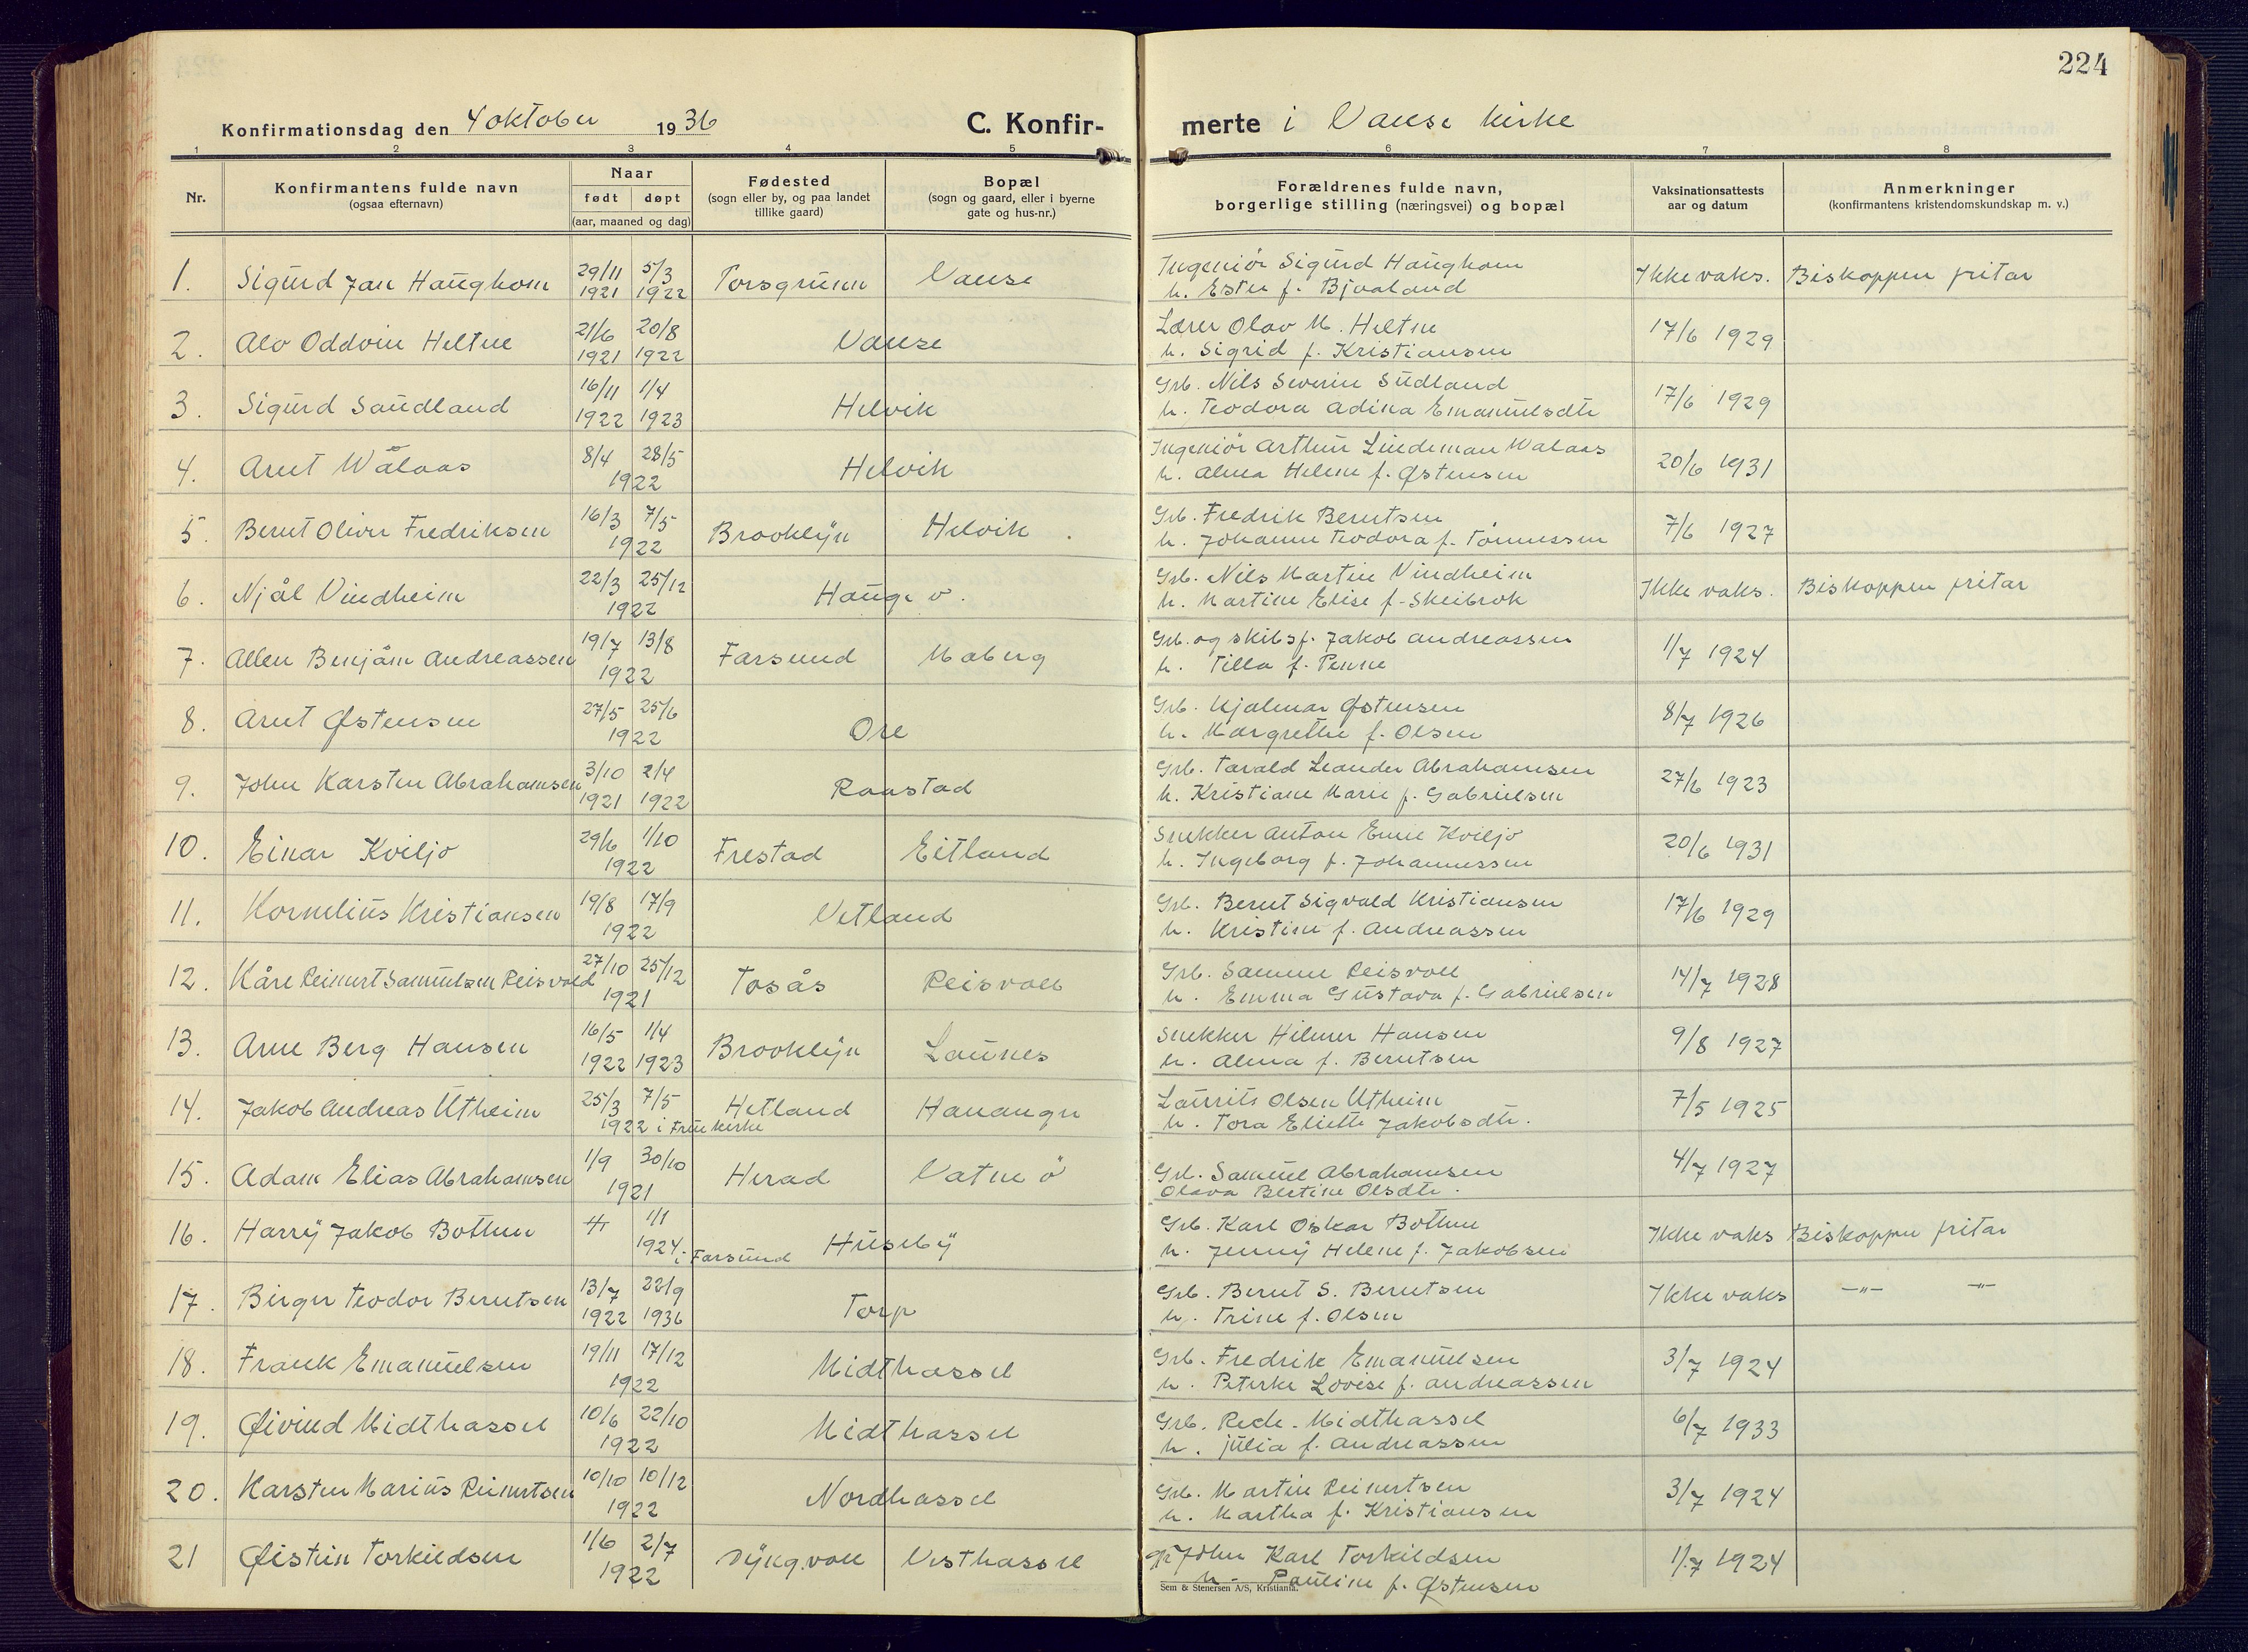 224
Konfirmationsdag den 4 oktober 1936 C. Konfir-merte i Vanse kirke
1 2 3 4 5 6 7 8
Nr. Konfirmantens fulde navn (ogsaa efternavn) Naar født døpt (aar, maaned og dag) Fødested (sogn eller by, og paa landet tillike gaard) Bopæl (sogn og gaard, eller i byerne gate og hus-nr.) Forældrenes fulde navn, borgerlige stilling (næringsvei) og bopæl Vaksinationsattests aar og datum Anmerkninger (konfirmantens kristendomskundskap m. v.)
1. Sigurd Jan Haughom 29/11 1921 5/3 1922 Porsgrunn Vanse Ingeniør Sigurd Haughom
h. Ester f. Bjvaland Ikke vaks. Biskoppen fritar
2. Alv Oddvin Heltne 21/6 1921 20/8 1922 Vanse Lærer Olav M. Heltne
h. Sigrid f. Kristiansen 17/6 1929
3. Sigurd Saudland 16/11 1922 1/4 1923 Helvik Grb. Nils Severin Sudland
h. Teodora Adina Emanuelsdtr 17/6 1929
4. Arnt Wålaas 8/4 28/5 1922 Helvik Ingeniør Arthur Lindeman Walaas
h. Alma Helene f. Østensen 20/6 1931
5. Bernt Oliver Fredriksen 16/3 7/5 1922 Brooklyn Helvik Grb. Fredrik Berntsen
h. Johanne Teodora f. Tønnessen 7/6 1927
6. Njål Vindheim 22/3 25/12 1922 Hauge v. Grb. Nils Martin Vindheim
h. Martine Elise f. Skeibrok Ikke vaks. Biskoppen fritar
7. Allen Benjam Andreassen 19/7 13/8 1922 Farsund Maberg Grb. og skibsf. Jakob Andreassen
h. Tilla f. Penne 1/7 1924
8. Arnt Østensen 27/5 25/6 1922 Ore Grb. Hjalmar Østensen
h. Margrethe f. Olsen 8/7 1926
9. John Karsten Abrahamsen 3/10 1921 2/4 1922 Raastad Grb. Tarald Leander Abrahamsen
h. Kristiane Marie f. Gabrielsen 27/6 1923
10. Einar Kviljo 29/6 1/10 1922 Frestad Eitland Snekker Anton Emil Kviljo
h. Ingeborg f. Johannessen 20/6 1931
11. Kornelius Kristiansen 19/8 17/9 1922 Vetland Grb. Bernt Sigvald Kristiansen
h. Kristine f. Andreassen 17/6 1929
12. Kåre Reinert Samuelsen Reisvold 27/10 25/12 1921 Tosås Reisvoll Grb. Samuel Reisvoll
h. Emma Gustava f. Gabrielsen 14/7 1928
13. Arne Berg Hansen 16/5 1922 1/4 1923 Brooklyn Launes Snekker Hilmer Hansen
h. Alma f. Berntsen 9/8 1927
14. Jakob Andreas Utheim 25/3 7/5 1922 i Frue kirke Hetland Hananger Laurits Olsen Utheim
h. Tora Eliette Jakobsdtr. 7/5 1925
15. Adam Elias Abrahamsen 1/9 30/10 1921 Herad Vatne ø Grb. Samuel Abrahamsen
Olava Bertine Olsdtr. 4/7 1927
16. Harry Jakob Bottun 1/1 1924 i Farsund Huseby Grb. Karl Oskar Bottun
h. Jenny Helene f. Jakobsen Ikke vaks Biskoppen fritar
17. Birger Teodor Berntsen 13/7 1922 22/9 1936 Torp Grb. Bernt S. Berntsen
h. Trine f. Olsen Ikke vaks —"— —"—
18. Frank Emanuelsen 19/11 17/12 1922 Midthassel Grb. Fredrik Emanuelsen
h. Peterke Lovise f. Andreassen 3/7 1924
19. Øivind Midthassel 10/6 22/10 1922 Midthassel Grb. Rede. Midthassel
h. Julia f. Andreassen 6/7 1933
20. Karsten Marius Reinertsen 10/10 10/12 1922 Nordhassel Grb. Martin Reinertsen
h. Martha f. Kristiansen 3/7 1924
21 Øistein Torkildsen 1/6 2/7 1922 Dyngvoll Vesthassel John Karl Torkildsen
h. Pauline f. Østensen 1/7 1924
Sem & Stenersen A/S, Kristiania.